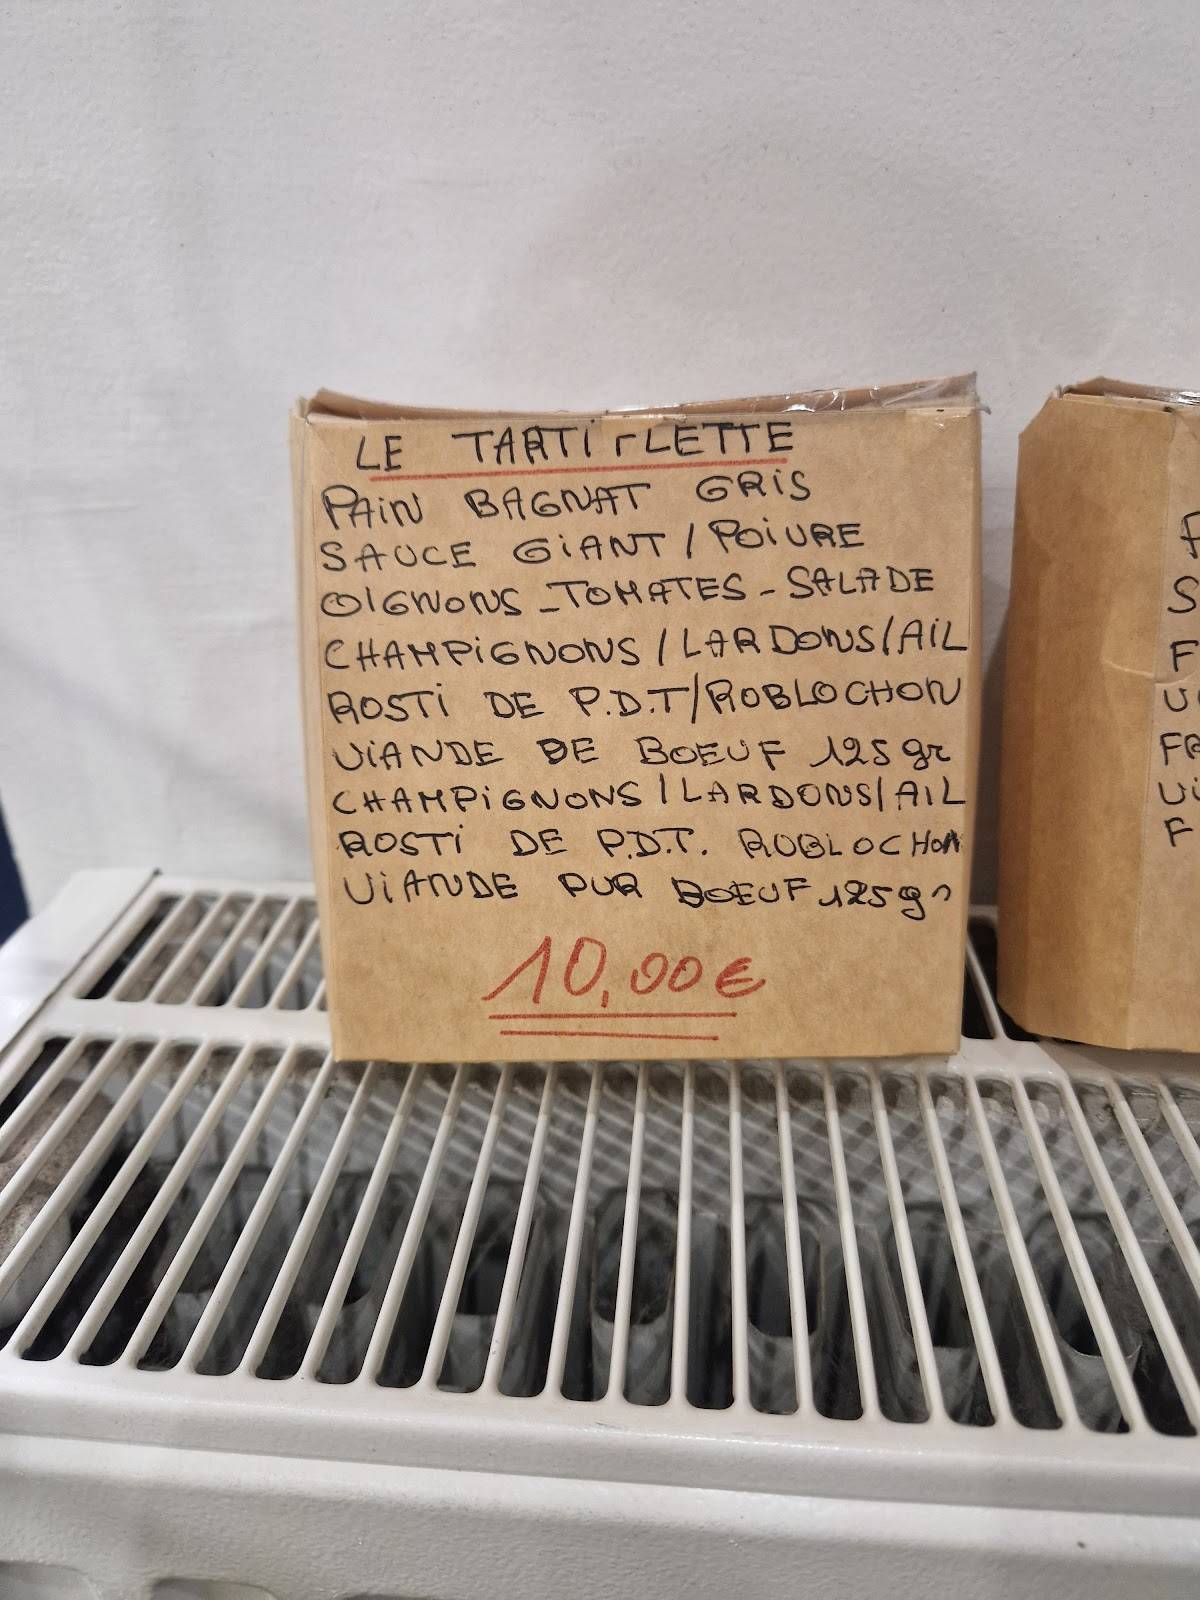 LE TARTIFLETTE
PAIN BAGNAT GRIS
SAUCE GIANT / POIVRE
OIGNONS - TOMATES - SALADE
CHAMPIGNONS / LARDONS / AIL
ROSTI DE P.D.T / ROBLOCHON
VIANDE DE BOEUF 125 gr
CHAMPIGNONS / LARDONS / AIL
ROSTI DE P.D.T. ROBLOCHON
VIANDE PUR BOEUF 125 gr
10,00€